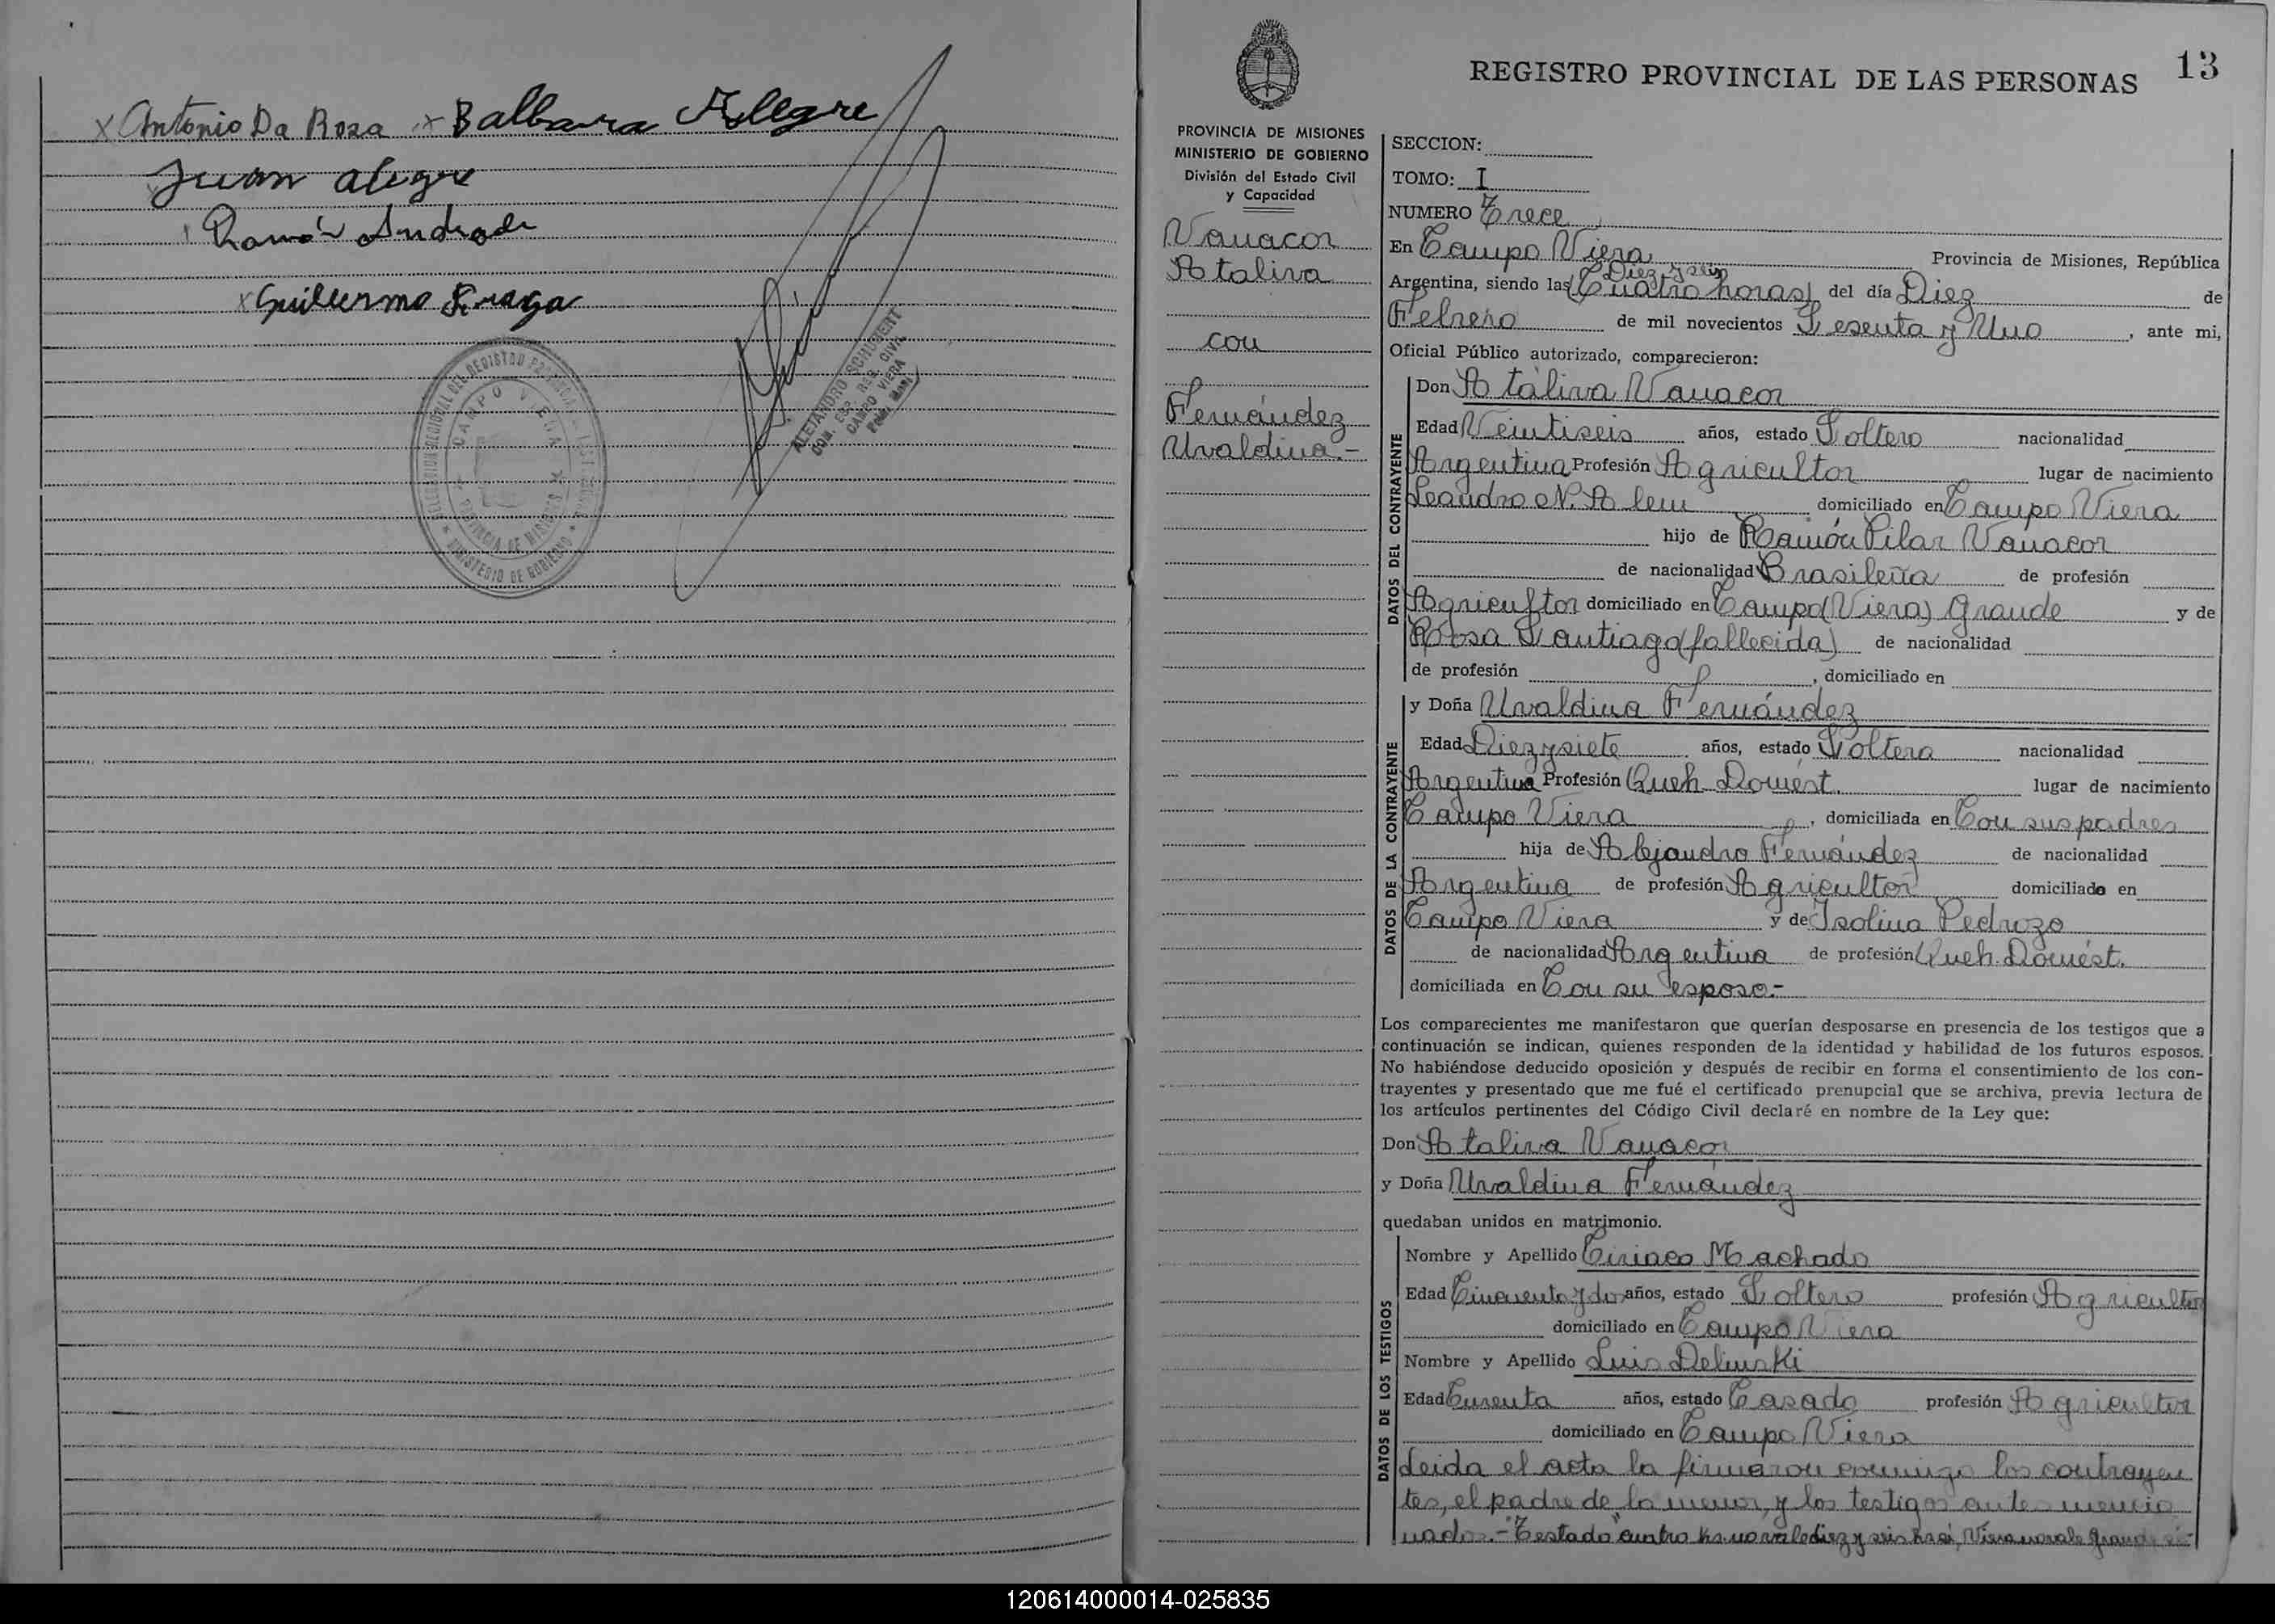 x Antonio Da Rosa x Balbara Alegre
Juan alegre
Ramón Andrade
x Guillermo Fraga
DELEGACION REGIONAL DEL REGISTRO PROVINCIAL
CAMPO VIERA
PROVINCIA DE MISIONES
MINISTERIO DE GOBIERNO
ALEJANDRO SCHUBERT
CAMPO VIERA
13
REGISTRO PROVINCIAL DE LAS PERSONAS
PROVINCIA DE MISIONES
MINISTERIO DE GOBIERNO
División del Estado Civil
y Capacidad
Vanacor
Ataliva
con
Fernández
Uvaldina.-
SECCION:
TOMO: I
NUMERO Trece
En Campo Viera Provincia de Misiones, República
Diez y seis
Argentina, siendo las (Cuatro horas) del día Diez de
Febrero de mil novecientos Sesenta y Uno, ante mi,
Oficial Público autorizado, comparecieron:
DATOS DEL CONTRAYENTE
Don Ataliva Vanacor
Edad Veintiseis años, estado Soltero nacionalidad
Argentina Profesión Agricultor lugar de nacimiento
Leandro N. Alem domiciliado en Campo Viera
hijo de Ramón Pilar Vanacor
de nacionalidad Brasileña de profesión
Agricultor domiciliado en Campo (Viera) Grande y de
Rosa Santiago (fallecida) de nacionalidad
de profesión , domiciliado en
DATOS DE LA CONTRAYENTE
y Doña Uvaldina Fernández
Edad Diez y siete años, estado Soltera nacionalidad
Argentina Profesión Queh. Domést. lugar de nacimiento
Campo Viera , domiciliada en Con sus padres
hija de Alejandro Fernández de nacionalidad
Argentina de profesión Agricultor domiciliado en
Campo Viera y de Isolina Pedrozo
de nacionalidad Argentina de profesión Queh. Domést.
domiciliada en Con su esposo.-
Los comparecientes me manifestaron que querían desposarse en presencia de los testigos que a
continuación se indican, quienes responden de la identidad y habilidad de los futuros esposos.
No habiéndose deducido oposición y después de recibir en forma el consentimiento de los con-
trayentes y presentado que me fué el certificado prenupcial que se archiva, previa lectura de
los artículos pertinentes del Código Civil declaré en nombre de la Ley que:
Don Ataliva Vanacor
y Doña Uvaldina Fernández
quedaban unidos en matrimonio.
DATOS DE LOS TESTIGOS
Nombre y Apellido Ciriaco Machado
Edad Cincuenta y dos años, estado Soltero profesión Agricultor
domiciliado en Campo Viera
Nombre y Apellido Luis Delinski
Edad Curenta años, estado Casado profesión Agricultor
domiciliado en Campo Viera
Leida el acta la firmaron conmigo los contrayen
tes, el padre de la menor, y los testigos antes mencio
nados.- "Testado" cuatro hs. no vale diez y seis hs si, Viera no vale Grande si-
120614000014-025835